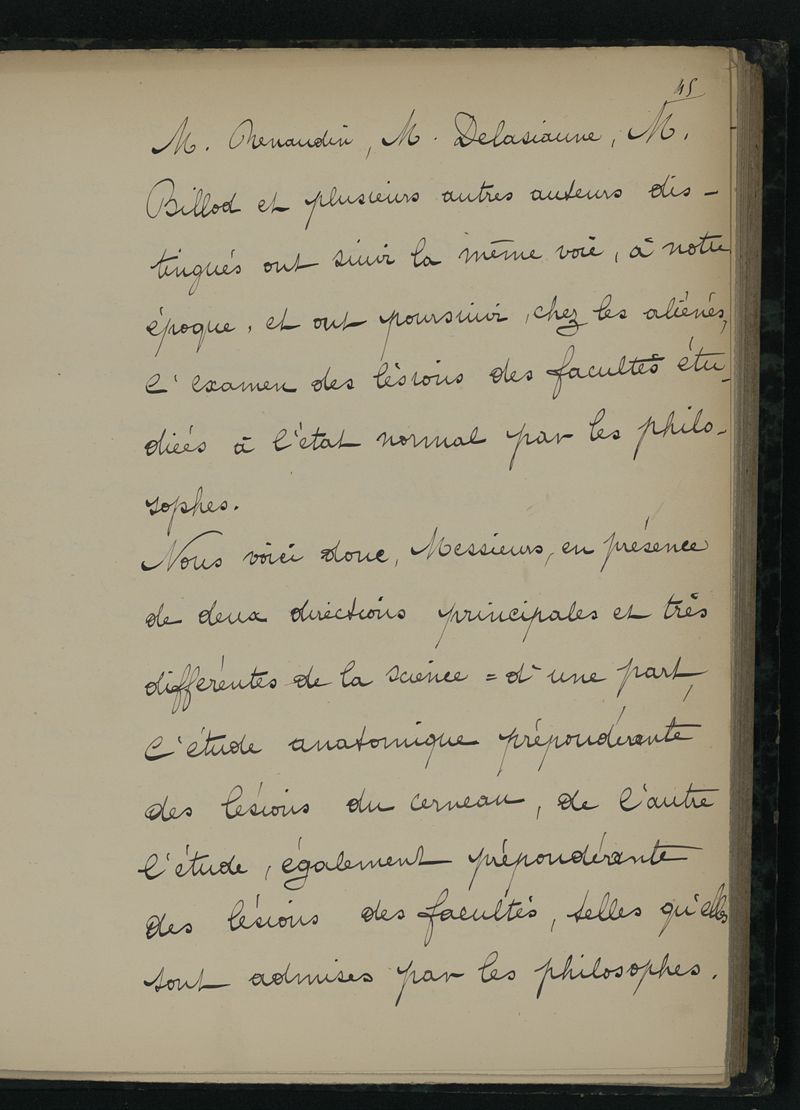 45
M. Renaudin, M. Delasiauve, M.
Billod et plusieurs autres auteurs dis-
tingués ont suivi la même voie, à notre
époque, et ont poursuivi, chez les aliénés,
l'examen des lésions des facultés étu-
diées à l'état normal par les philo-
sophes.
Nous voici donc, Messieurs, en présence
de deux directions principales et très
différentes de la science = d'une part,
l'étude anatomique prépondérante
des lésions du cerveau, de l'autre
l'étude, également prépondérante
des lésions des facultés, telles qu'elles
sont admises par les philosophes.